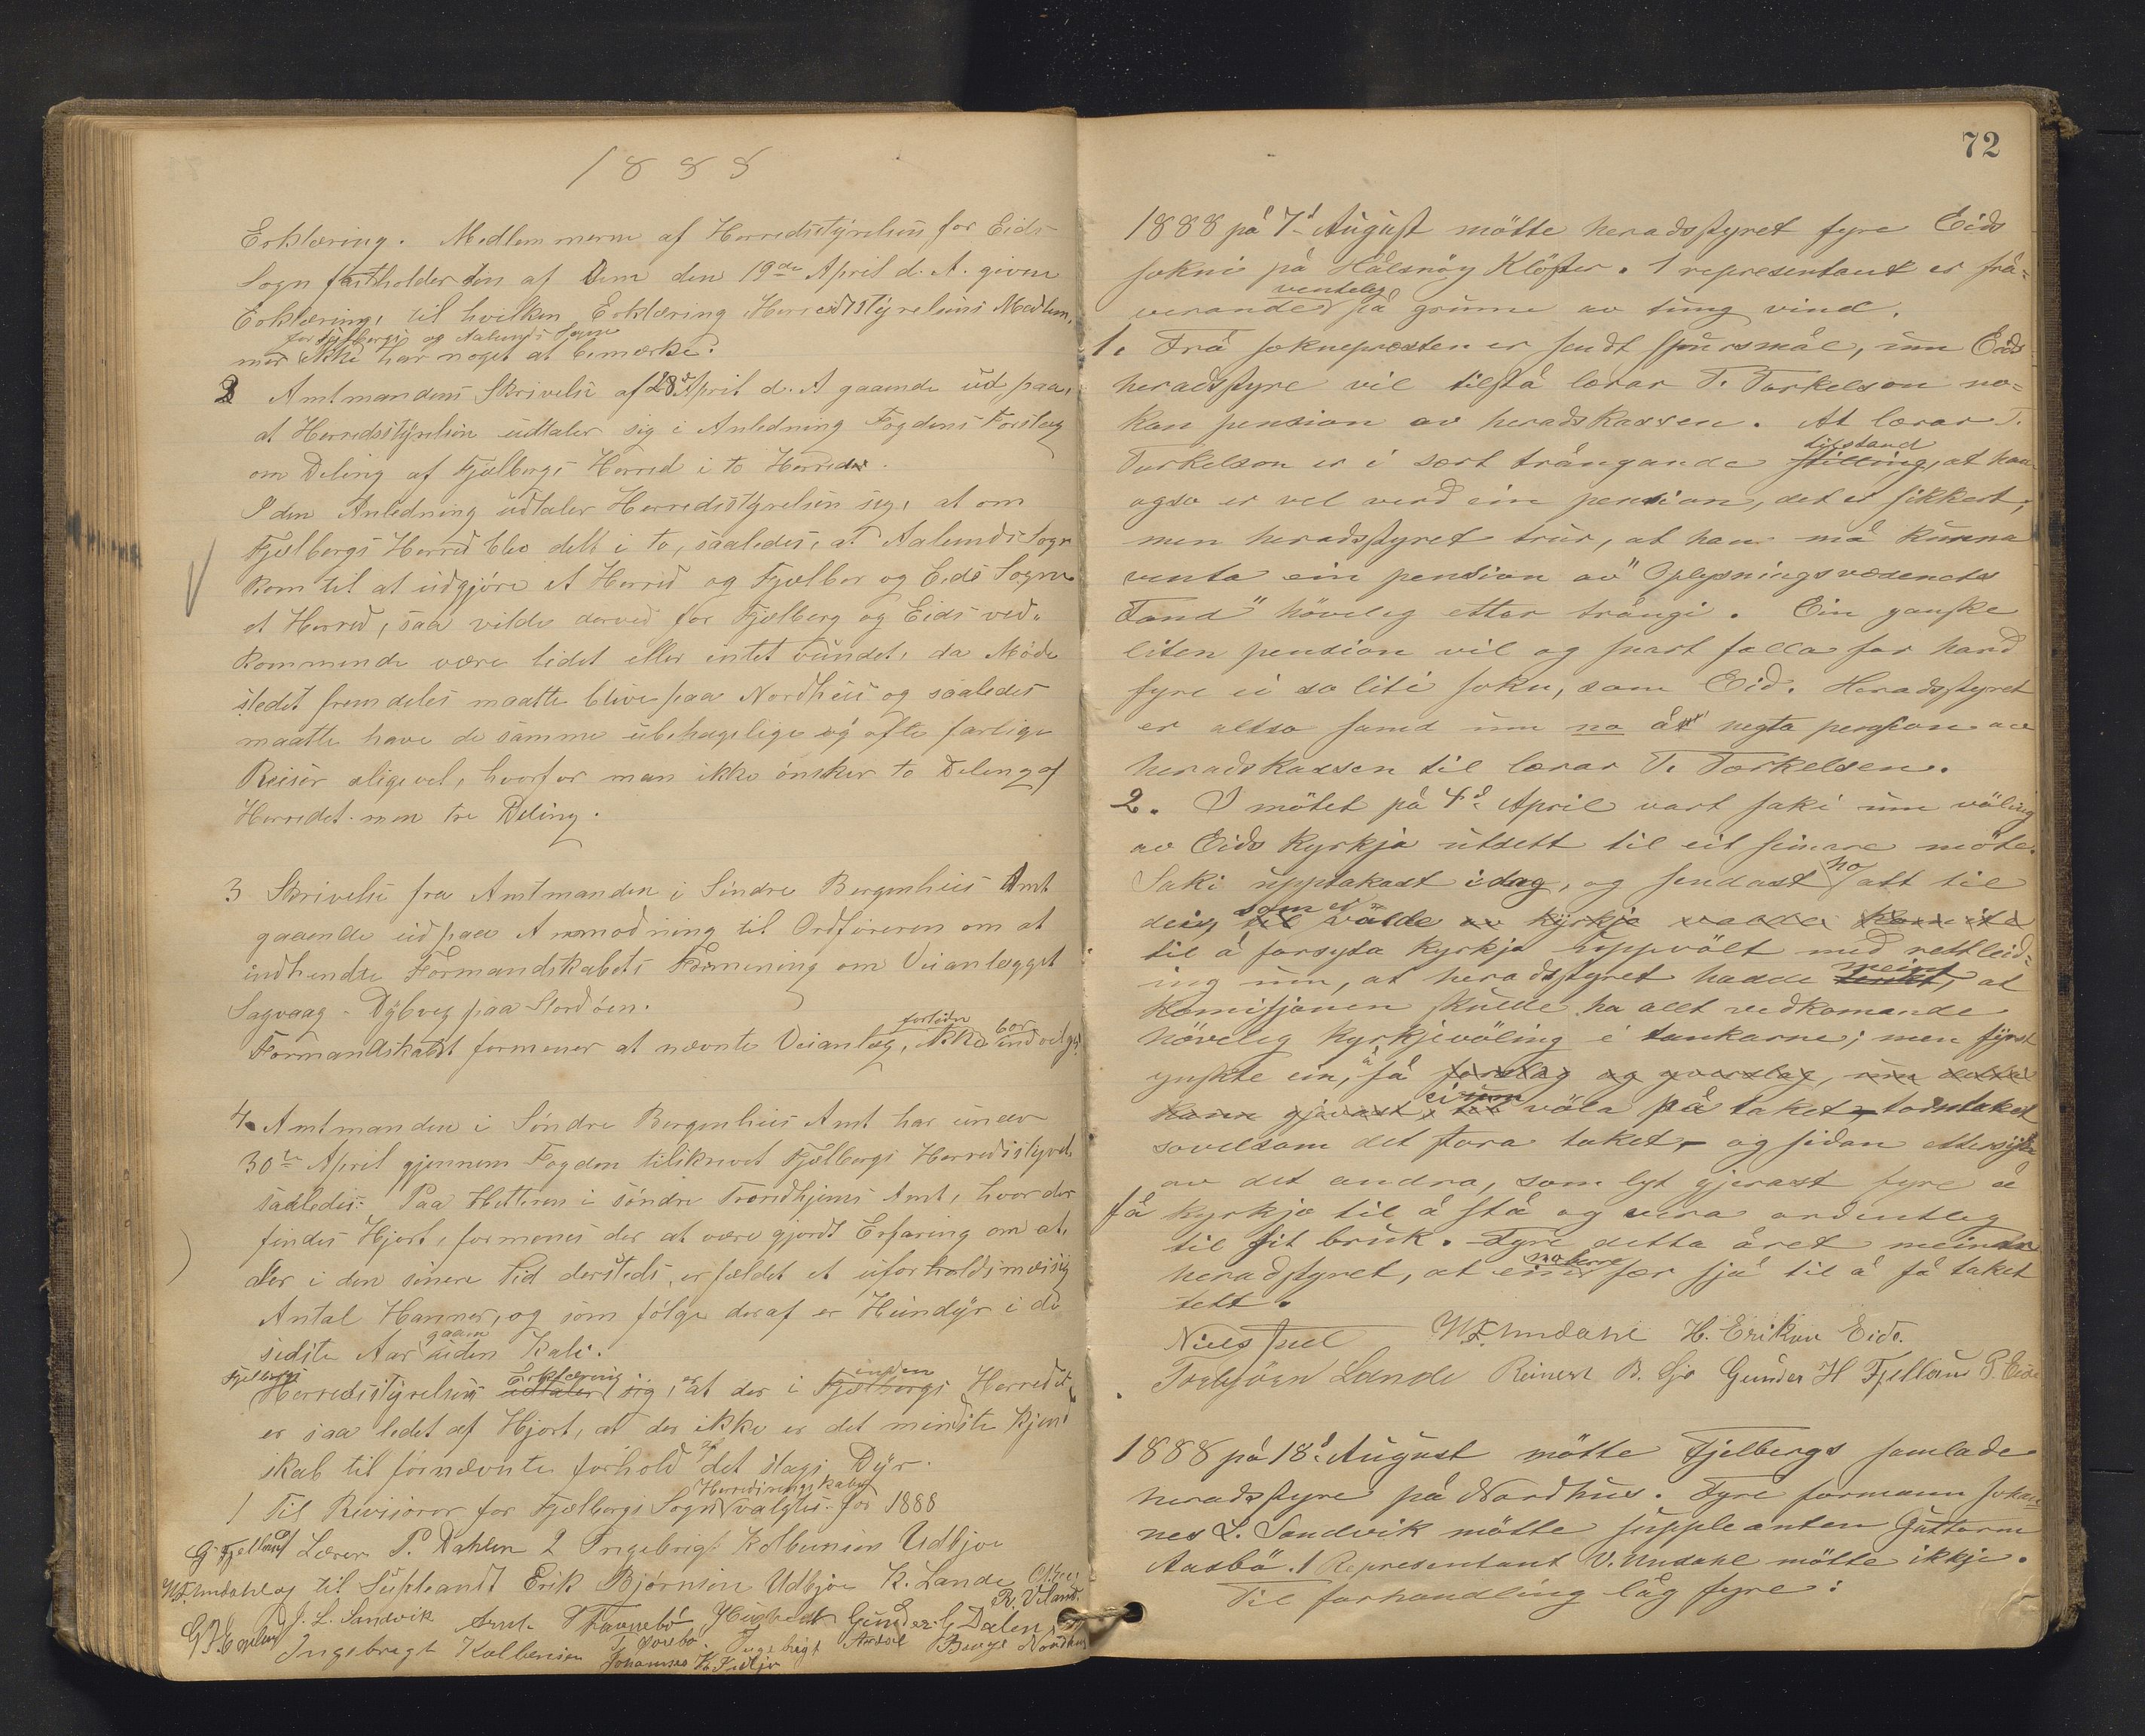 1888
Erklæring. Medlemmerne af Herredsstyrelsen for Eids
Sogn fastholder den af Dem den 19de April d. A. given
Erklæring, til hvilken Erklæring Herredsstyrelsens Medlem,
for Fjelbergs og Aalunds Sogne
mer ikke har noget at bemærke.
2 Amtmandens Skrivelse af 28de April d. A gaaende ud paa,
at Herredsstyrelsen udtaler sig i Anledning Fogdens Forslag
om Deling af Fjelbergs Herred i to Herreder.
I den Anledning udtaler Herredsstyrelsen sig, at om
Fjelbergs Herred blev delt i to, saaledes, at Aalunds Sogn
kom til at udgjøre et Herred og Fjelber og Eids Sogne
et Herred, saa vilde derved for Fjelberg og Eids ved-
kommende være lidet eller intet vundet, da Møde
stedet fremdeles maatte blive paa Nordhuis og saaledes
maatte have de samme ubehagelige og ofte farlige
Reiser aligevel, hvorfor man ikke ønsker to Deling af
Herredet men tre Deling.
3 Skrivelse fra Amtmanden i Søndre Bergenhuis Amt
gaaende ud paa Anmodning til Ordføreren om at
indhendte Formandskabets Formening om Veianlægget
Sagvaag - Dybvig paa Stordøen.
forliden bør
Formandskabet formener at nævnte Veianlæg, ikke indvilges
4. Amtmanden i Søndre Bergenhuis Amt har under
30te April gjennem Fogden tilskrevet Fjelbergs Herredsstyrel.
saaledes: Paa Hitteren i søndre Trondhjems Amt, hvor der
findes Hjort, formenes der at være gjordt Erfaring om at,
der i den senere Tid dersteds, er fældet et uforholdsmæsig
Antal Hanner, og som følge deraf er Hundyr i de
gaaen
sidste Aar uden Kalv.
Fjelbergs Erklæring er inden
Herredsstyrelsens udtaler sig, at der i Fjelbergs Herredet
er saa lidet af Hjort, at der ikke er det mindste kjend
skab til førnævnte forhold af det slags Dyr.
Herredsregnskabet
1 Til Revisorer for Fjelbergs Sogn valgtes for 1888
G Fjelland Lærer P. Dahlen 2 Ingebrigt Kolbensen Udbjoe
W. Undahl og til Supleandt Erik Bjørnsen Udbjoe K. Lande
R. Viland.
J. L. Sandvik Gunder G Dalen
Ingebregt Kolbensen
72
1888 på 7d August mötte heradsstyret fyre Eids
sokni på Hålsnöy Klöster. 1 representant er frå-
venteleg
verande på grunn av tung vind.
1. Frå soknepresten er sendt spursmål, um Eids
heradsstyre vil tilstå lærar T. Torkelson no-
kon pension av heradskassen. At lærar T.
tilstand
Torkelson er i sært trångande stilling, at han
ogso er vel verd ein pension, det er sikkert,
men heradsstyret trur, at han må kunna
venta ein pension av "Oplysningsvæsenets
Fond" höveleg etter trångi. Ein ganske
liten pension vil og snart falla for hard
fyre ei so liti sokn, som Eid. Heradsstyret
er altso samd um no å negta pension av
heradskassen til lærar T. Torkelsen.
2. I mötet på 4d April vart saki um völing
av Eids kyrkja utsett til eit seinare möte.
no
Saki upptakast idag, og sendast att til
som er
deig til völde av kyrkja valde komite
til å forsyta kyrkja uppvölt med rettleid-
meint
ing um, at heradsstyret hadde tenkt, at
Komisjonen skulde ha allt vedkomande
höveleg kyrkjevöling i tankarne; men fyrst
ynskte ein, å få forslag og yverslag, um detta
ei um
kunn gjerast, til völa på taket - tårntaket
sovelsom det stora taket, - og sidan ettersjå
av det andra, som lyt gjerast fyre å
få kyrkja til å stå og vera ordentleg
til sit bruk. Fyre detta året meinar
noherre
heradsstyret, at ein fær sjå til å få taket
tett.
Niels Juel W. Undahl H. Erikson Eide.
Torbjörn Lande Reinert B. Sjo Gunder H Fjelland P. Eide
1888 på 18d August mötte Fjelbergs samlade
heradsstyre på Nordhus. Fyre formann Johan-
nes L. Sandvik mötte suppleanten Guttorm
Aasbö. 1 Representant V. Undahl mötte ikkje.
Til forhandling låg fyre: